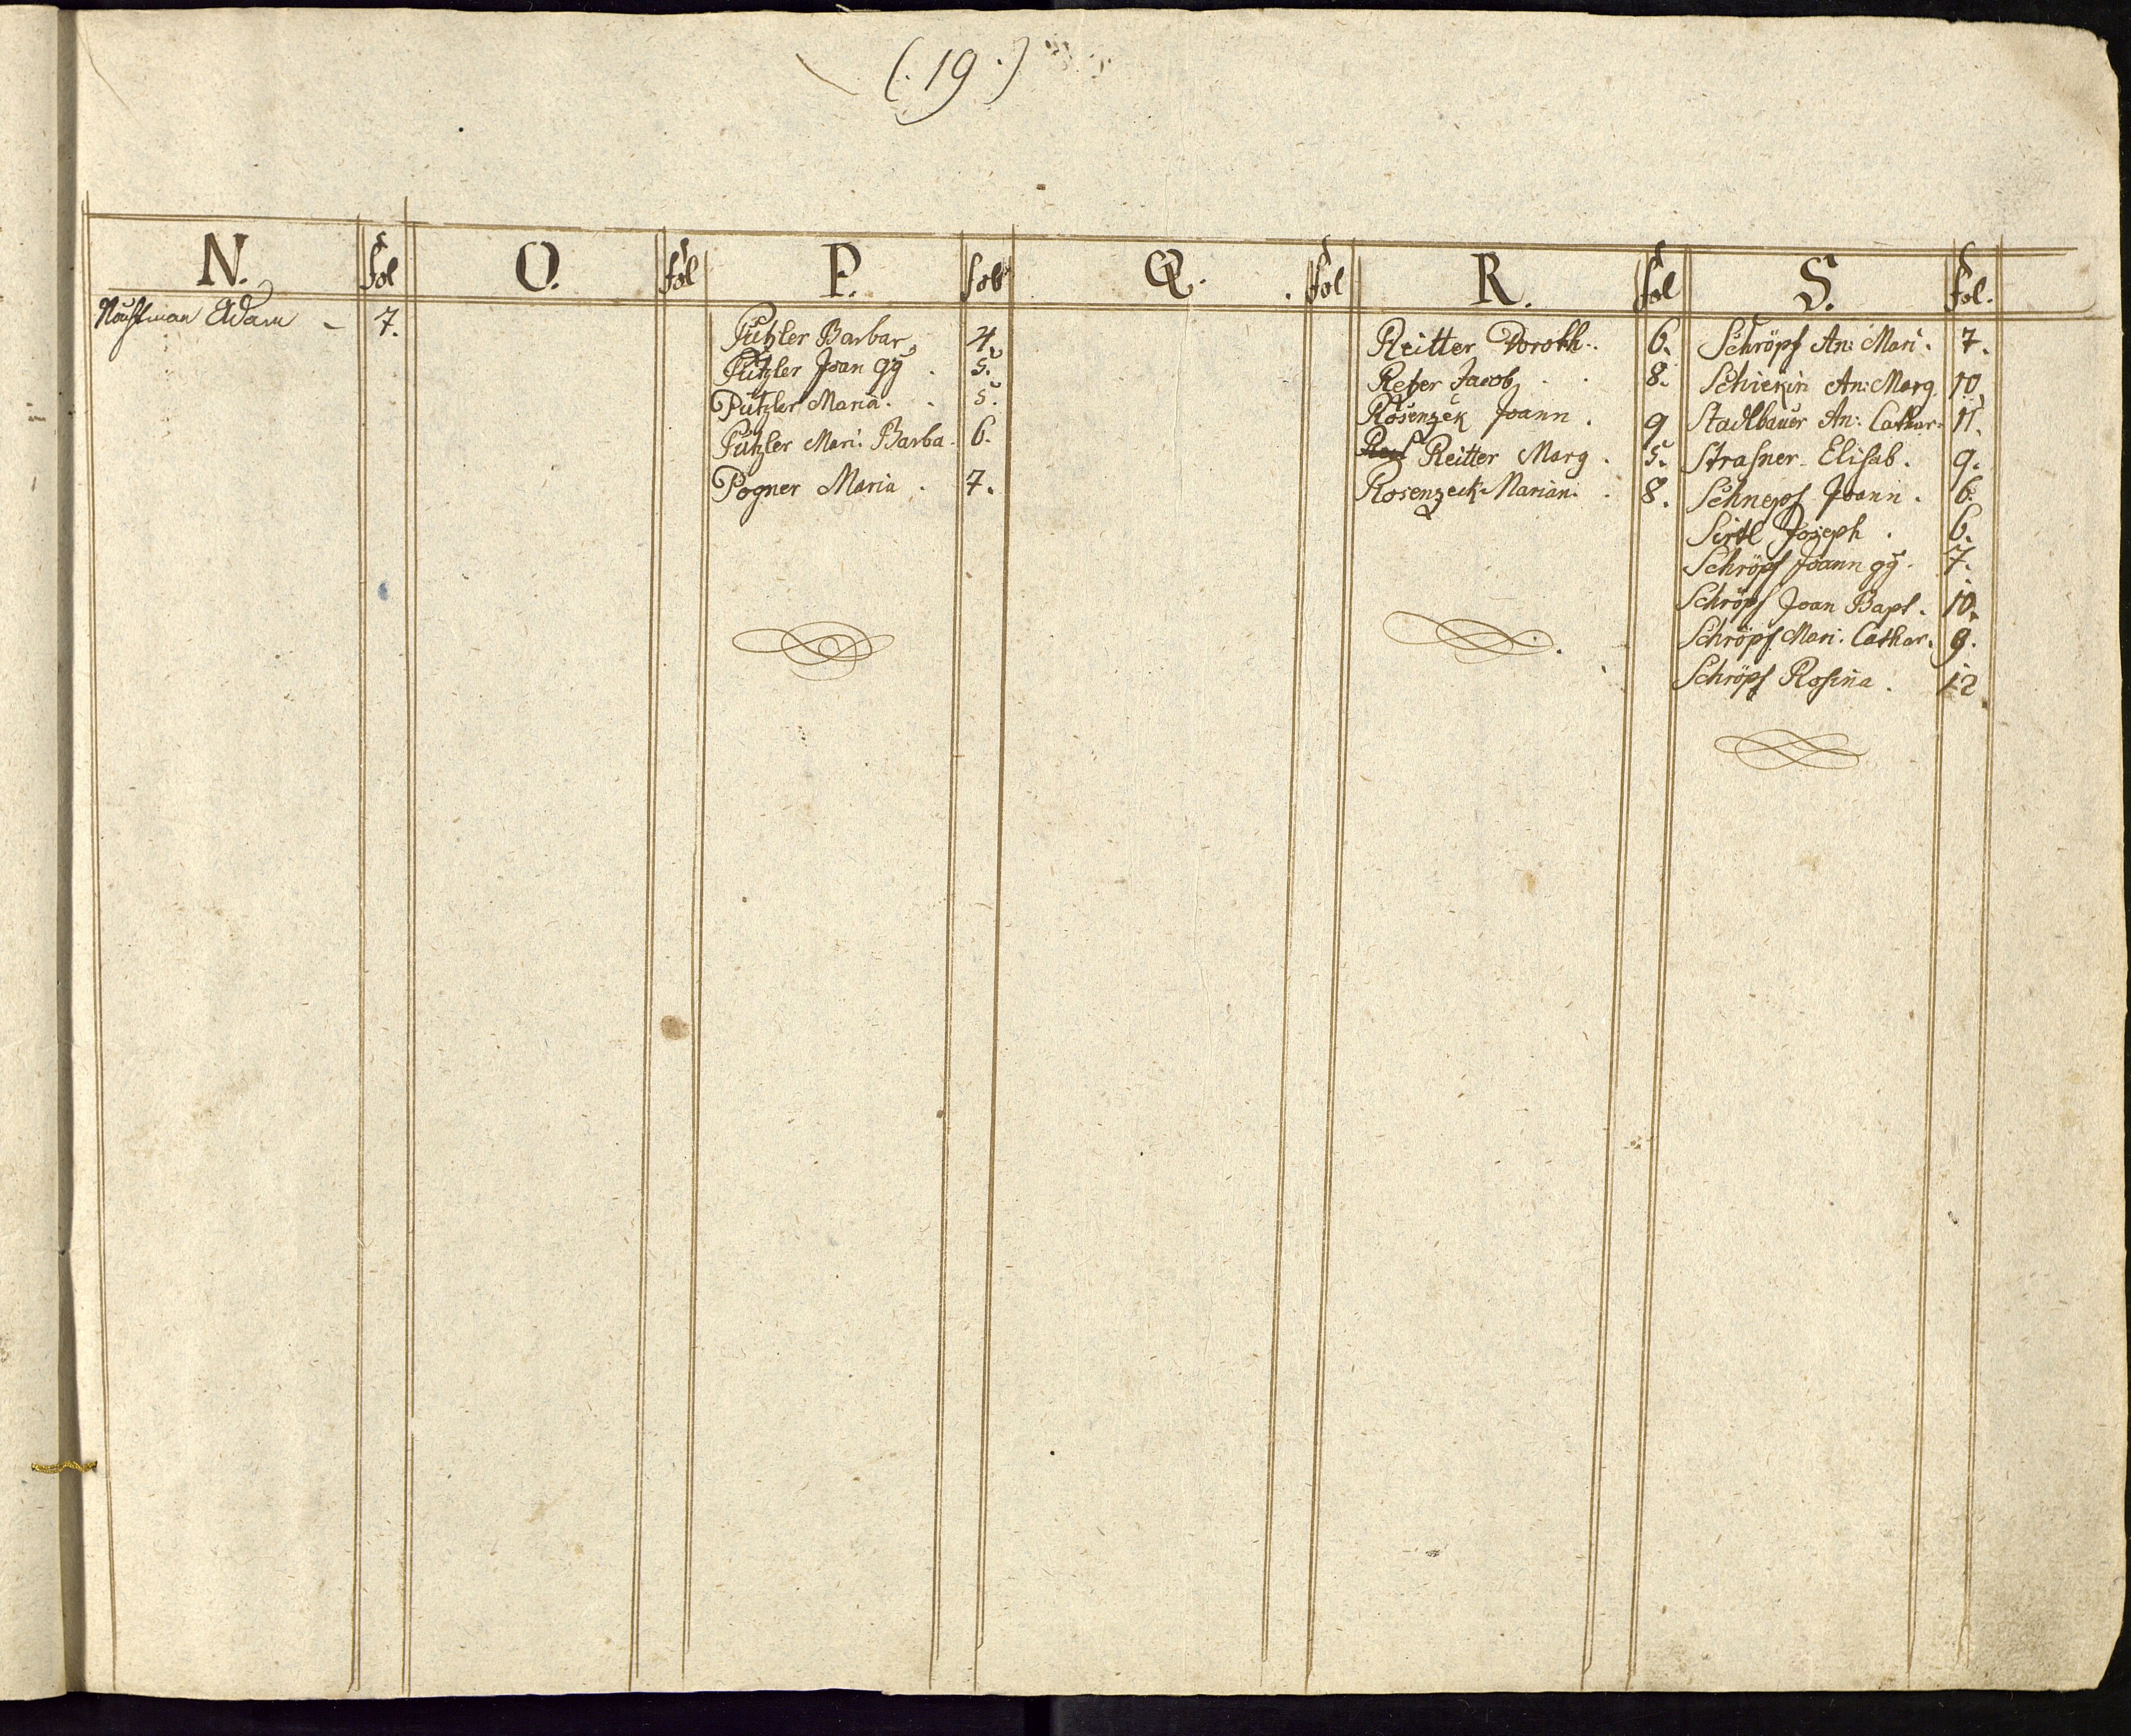 (. 19 .)
N. fol O. fol P. fol Q. fol R. fol S. fol.
Adam - 7.
Putzler Barbar. 4.
Putzler Joan gg . 5.
Putzler Maria. . 5.
Putzler Mari. Barba. 6.
Pogner Maria . 7.
Reitter Doroth. 6.
Jacob . . 8.
Rosenzek Joann . 9
Reitter Marg . 5.
Rosenzeck Marian. . 8.
Schröpf An: Mari. 7.
An: Marg. 10.
Stadlbauer An: Cathar. 11.
Strasner Elisab. 9.
Schnepf Joann . 6.
Seidl Joseph . 6.
Schröpf Joann gg . 7.
Schröpf Joan Bapt. 10.
Schröpf Mari. Cathar. 9.
Schröpf Rosina . 12